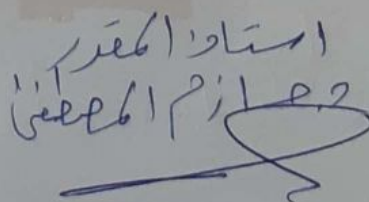 استاذ المقرر
د. حازم المصطفى